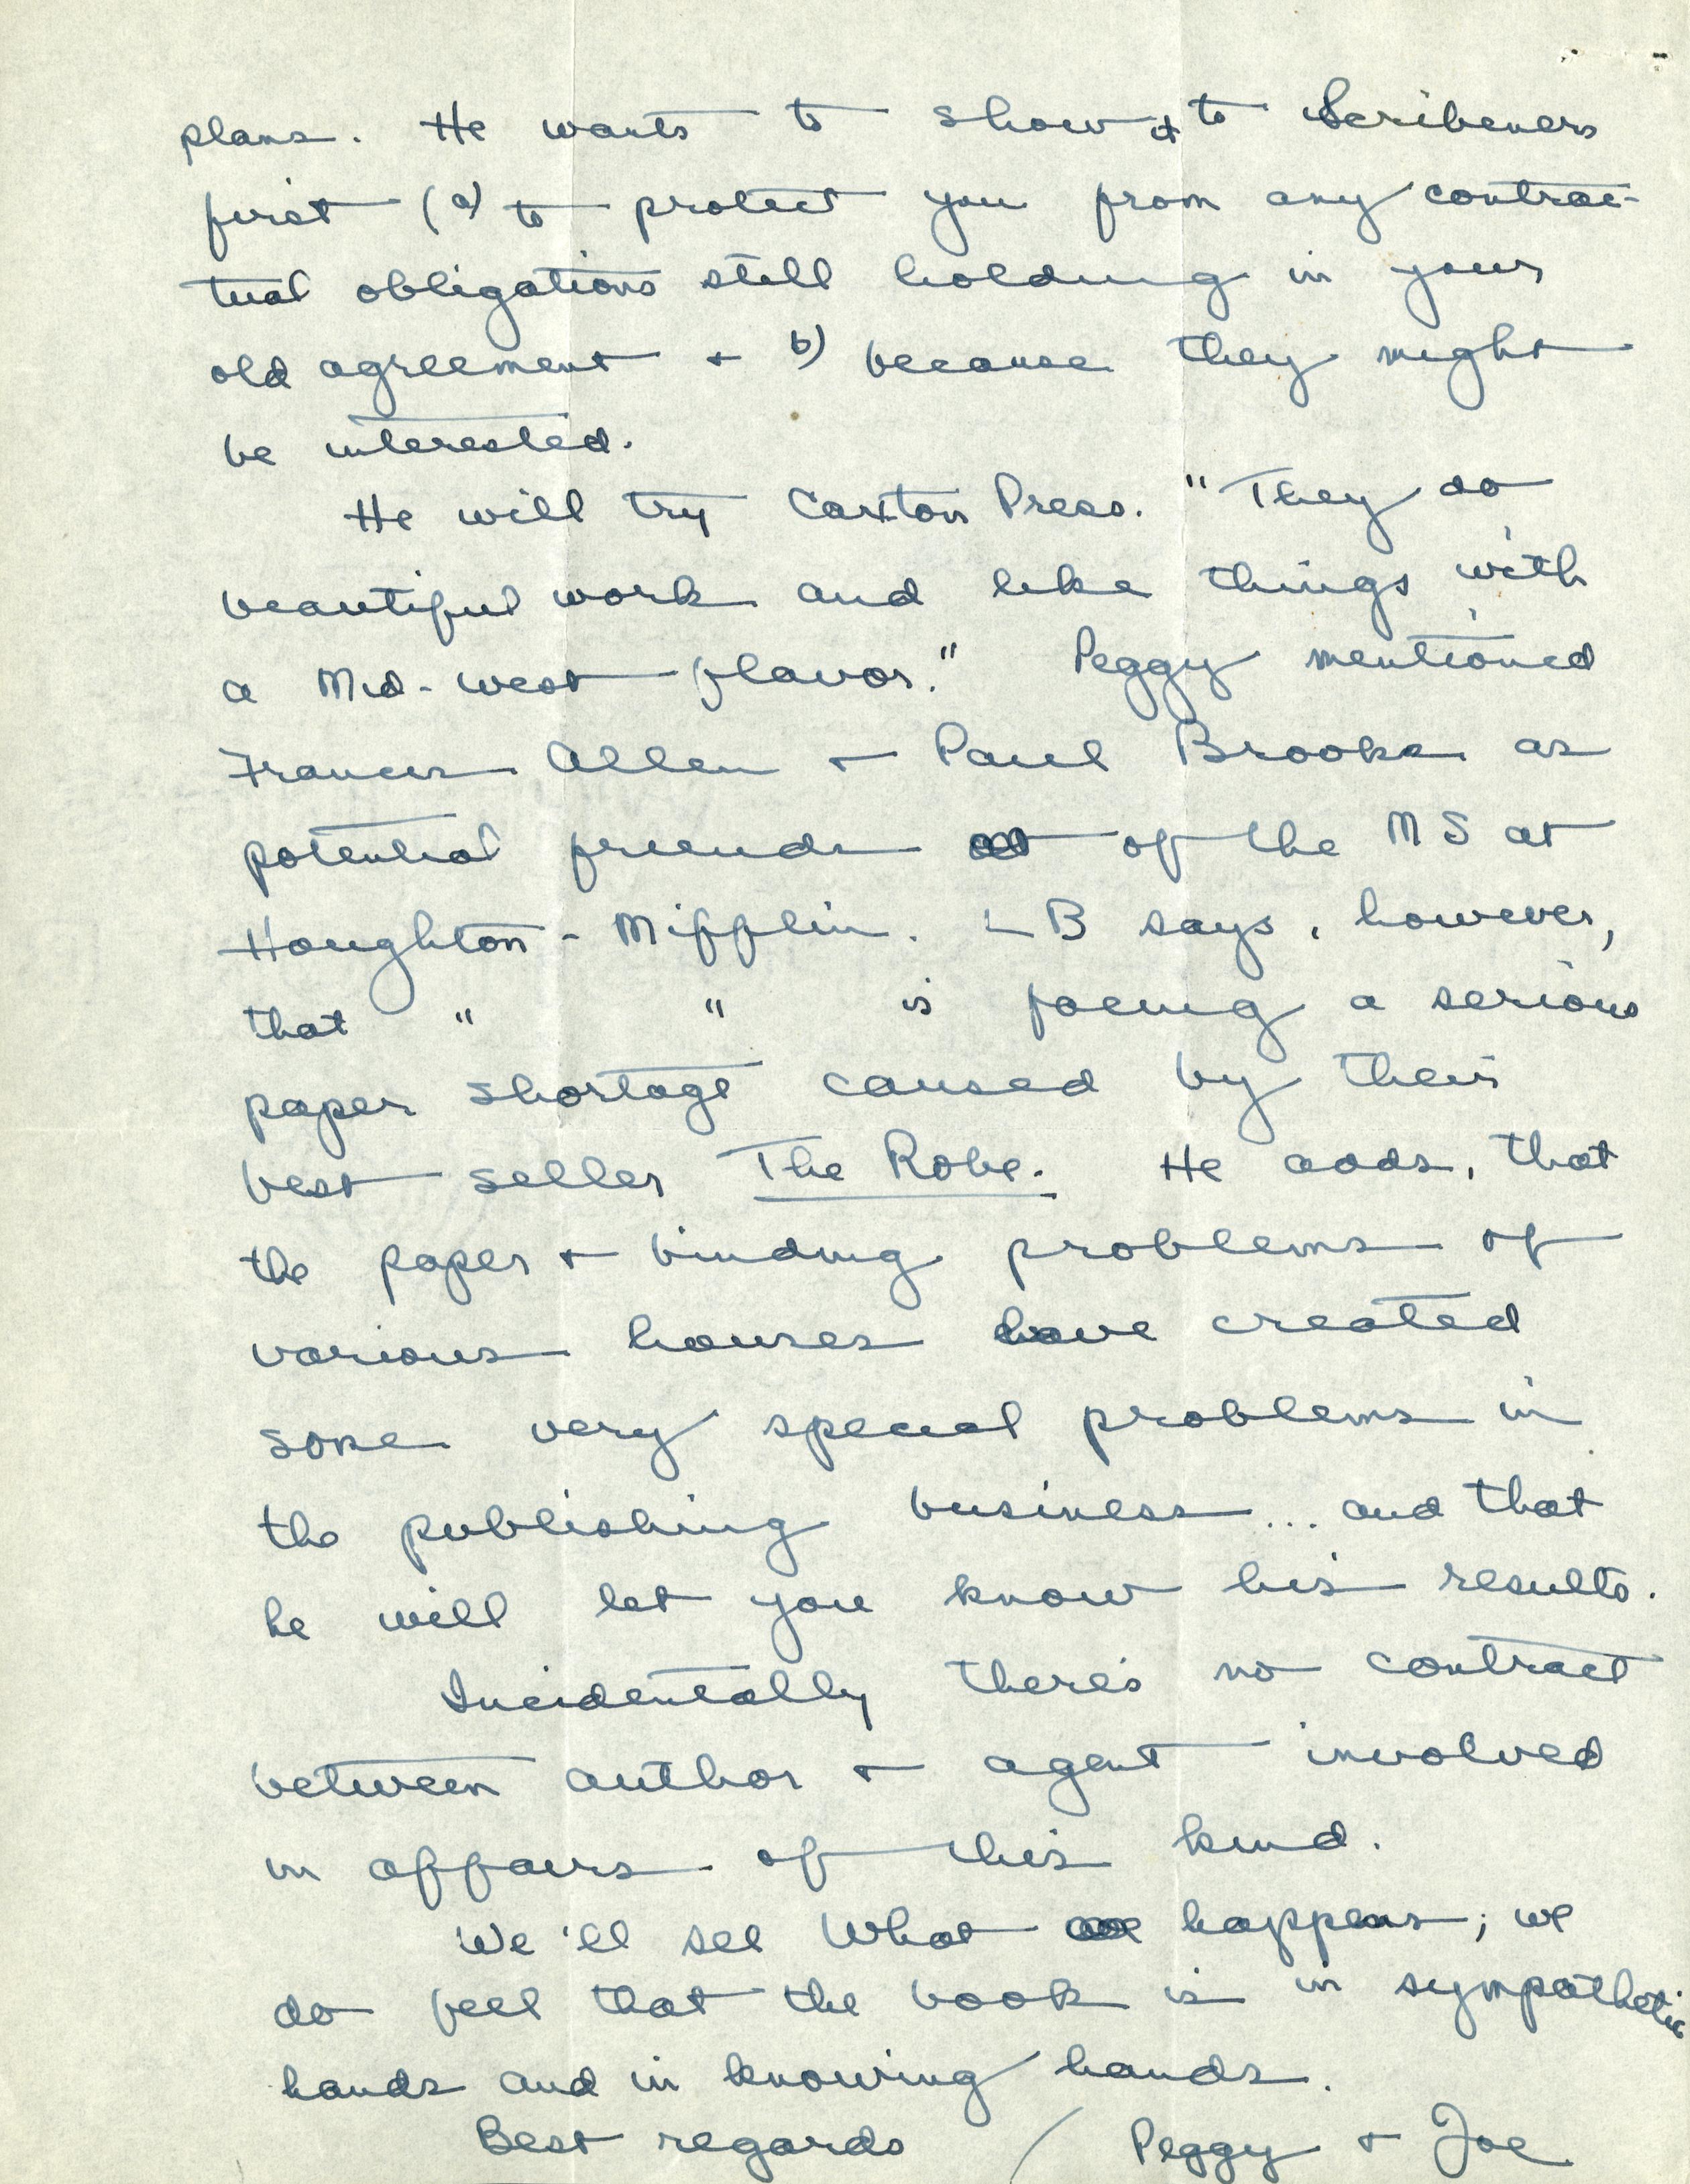 plans. He wants to show it to Scribeners
first (a) to protect you from any contrac-
tual obligations still holding in your
old agreement + b) because they might
be interested.
He will try Caxton Press. "They do
beautiful work and like things with
a Mid-west flavor." Peggy mentioned
Frances Allen + Paul Brooks as
potential friends of the MS at
Houghton-Mifflin. LB says, however,
that " " is facing a serious
paper shortage caused by their
best seller The Robe. He adds, that
the paper + binding problems of
various houses have created
some very special problems in
the publishing business... and that
he will let you know his results.
Incidentally there's no contract
between author + agent involved
in affairs of this kind.
We'll see what happens; we
do feel that the book is in sympathetic
hands and in knowing hands.
Best regards / Peggy + Joe